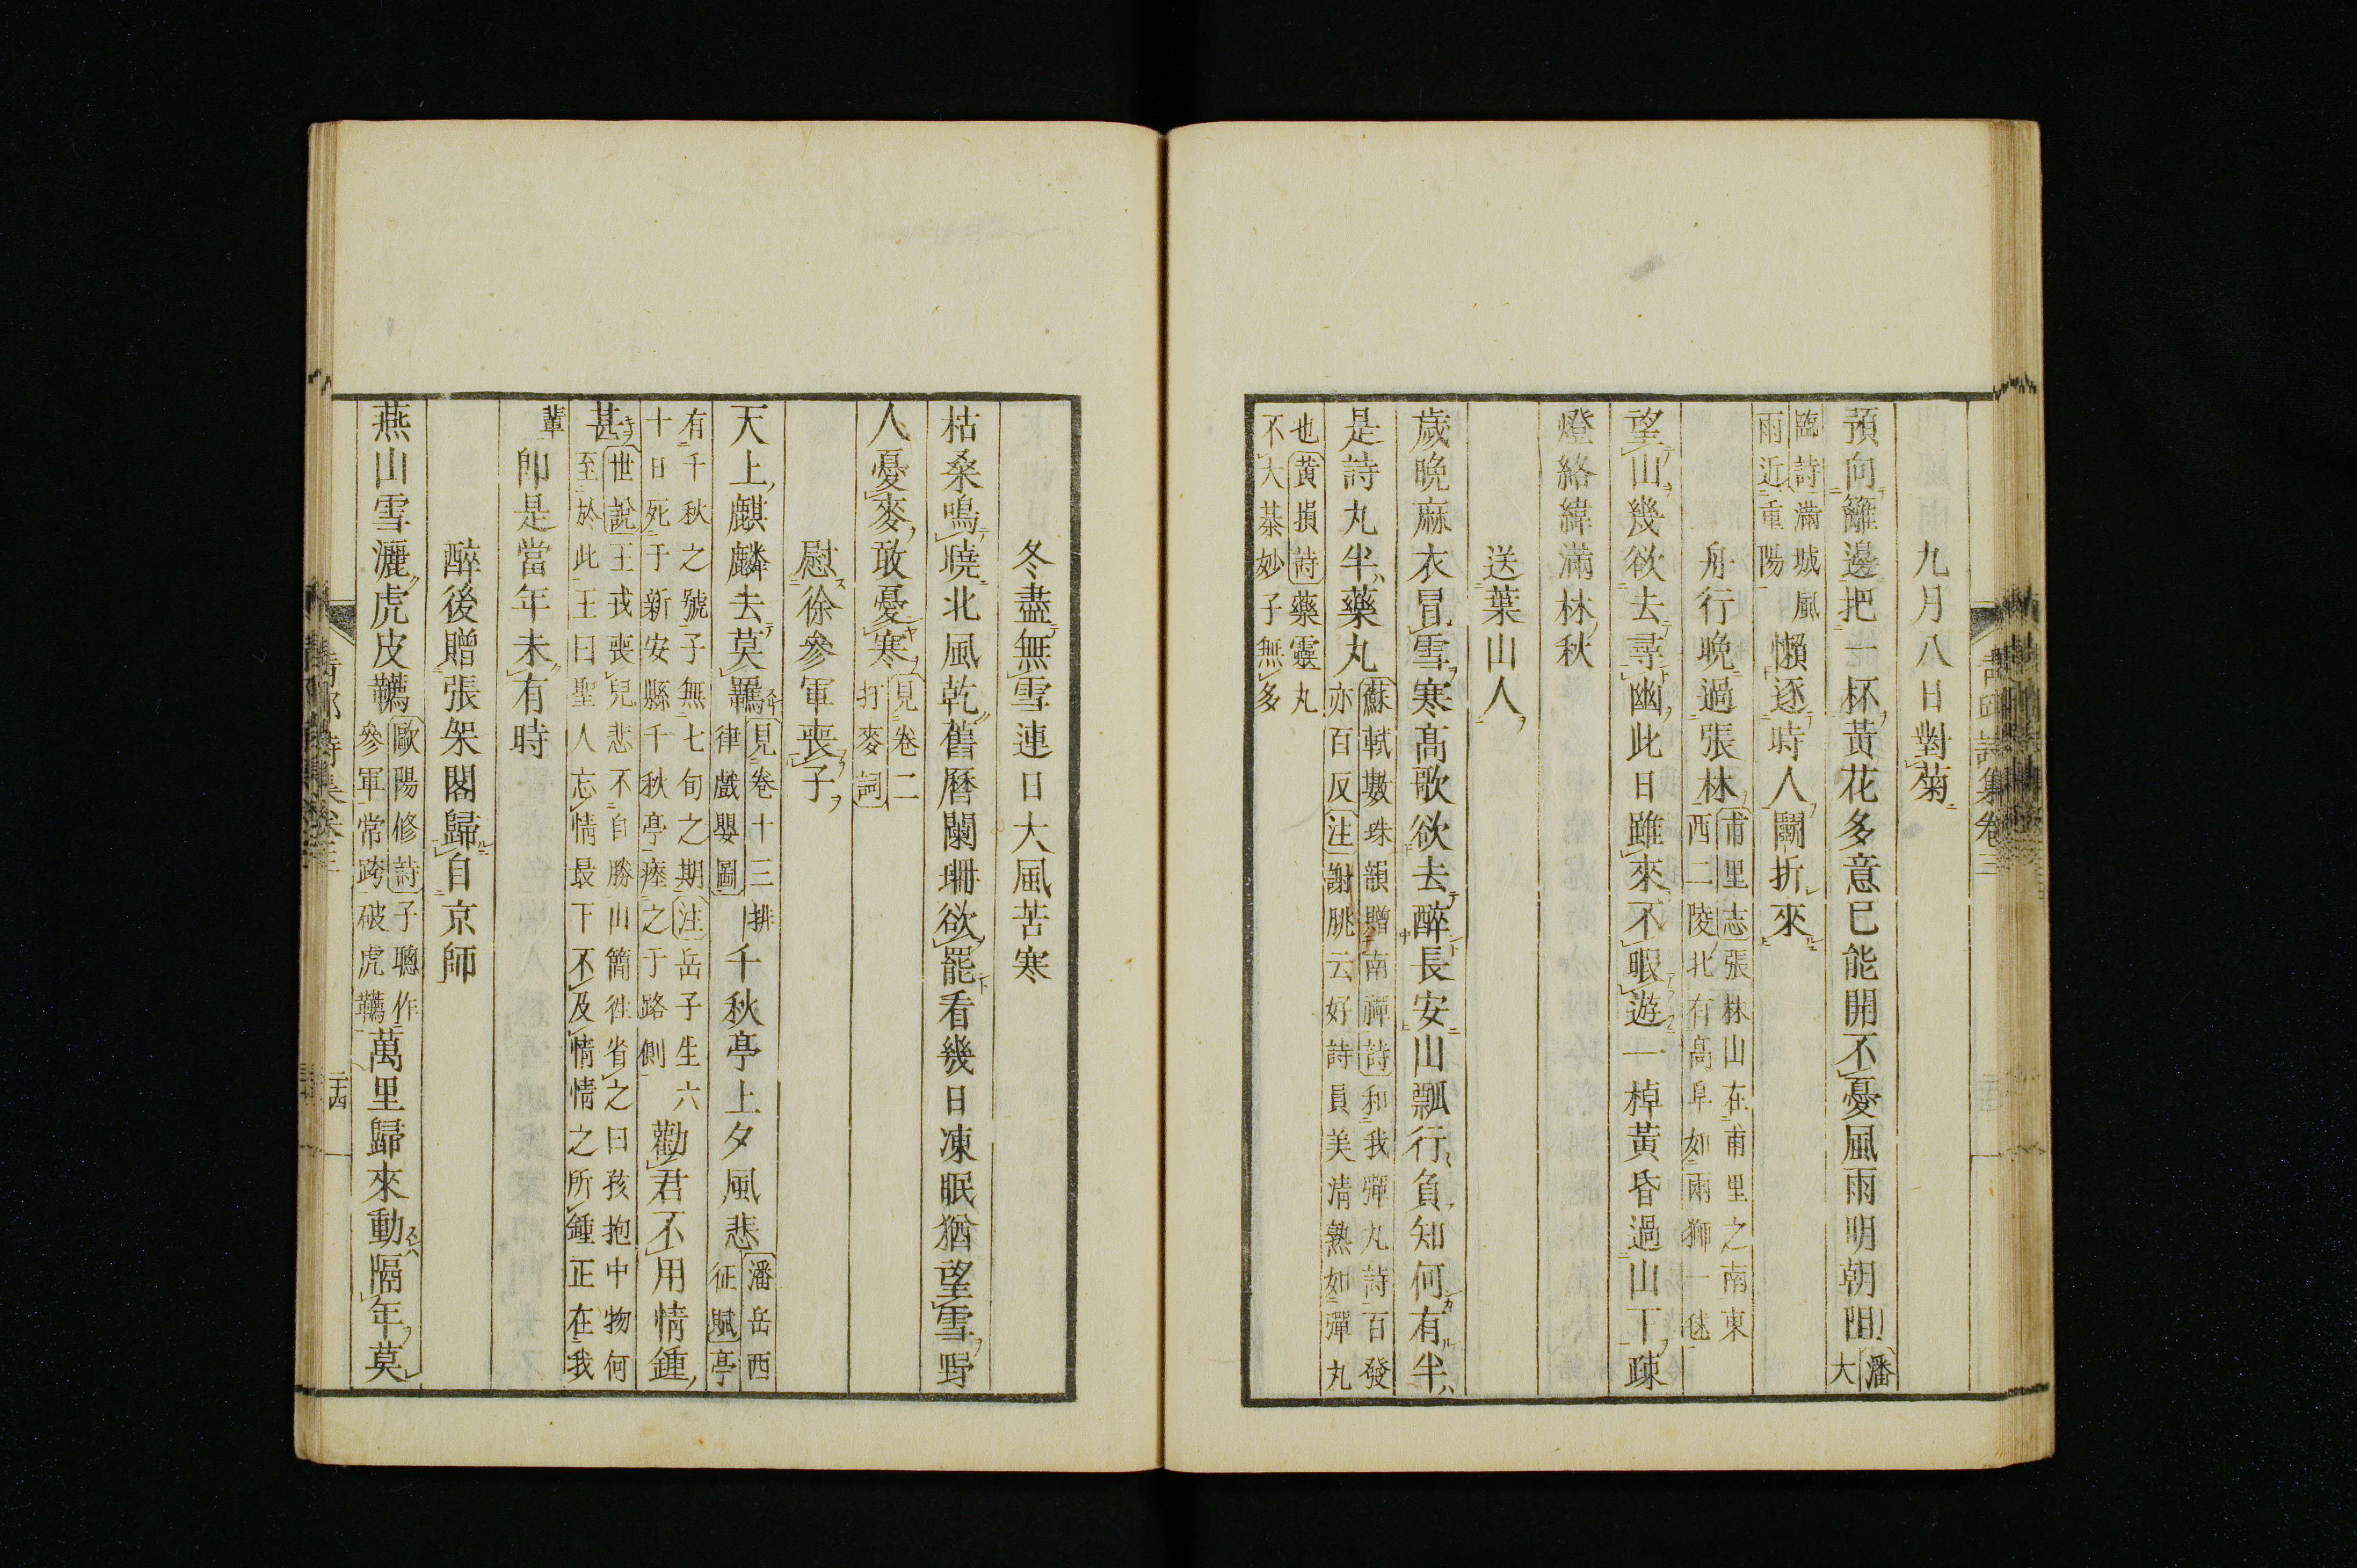 九月八日對菊
預向籬邊把一杯黃花多意已能開不憂風雨明朝阻潘大
臨詩滿城風雨近重陽懶逐時人鬭折來
舟行晚過張林甫里志張林山在甫里之南東西二陵北有高阜如兩獅一毬
望山幾欲去尋幽此日雖來不暇遊一棹黃昏過山下疎
燈絡緯滿林秋
送葉山人
歲晚麻衣冒雪寒高歌欲去醉長安山瓢行負知何有半
是詩丸半藥丸蘇軾數珠韻贈南禪詩和我彈丸詩百發亦百反注謝朓云好詩員美清熟如彈丸
也黃損詩藥靈丸不大棊妙子無多
冬盡無雪連日大風苦寒
枯桑鳴曉北風乾舊曆闌珊欲罷看幾日凍眠猶望雪野
人憂麥敢憂寒見卷二打麥詞
慰徐參軍喪子
天上麒麟去莫羈見卷十三排律戲嬰圖千秋亭上夕風悲潘岳西征賦亭
有千秋之號子無七旬之期注岳子生六十日死于新安縣千秋亭瘞之于路側勸君不用情鍾
甚世說王戎喪兒悲不自勝山簡徃省之曰孩抱中物何至於此王曰聖人忘情最下不及情情之所鍾正在我
輩卽是當年未有時
醉後贈張架閣歸自京師
燕山雪灑虎皮韉歐陽修詩子聰作參軍常跨破虎韉萬里歸來動隔年莫